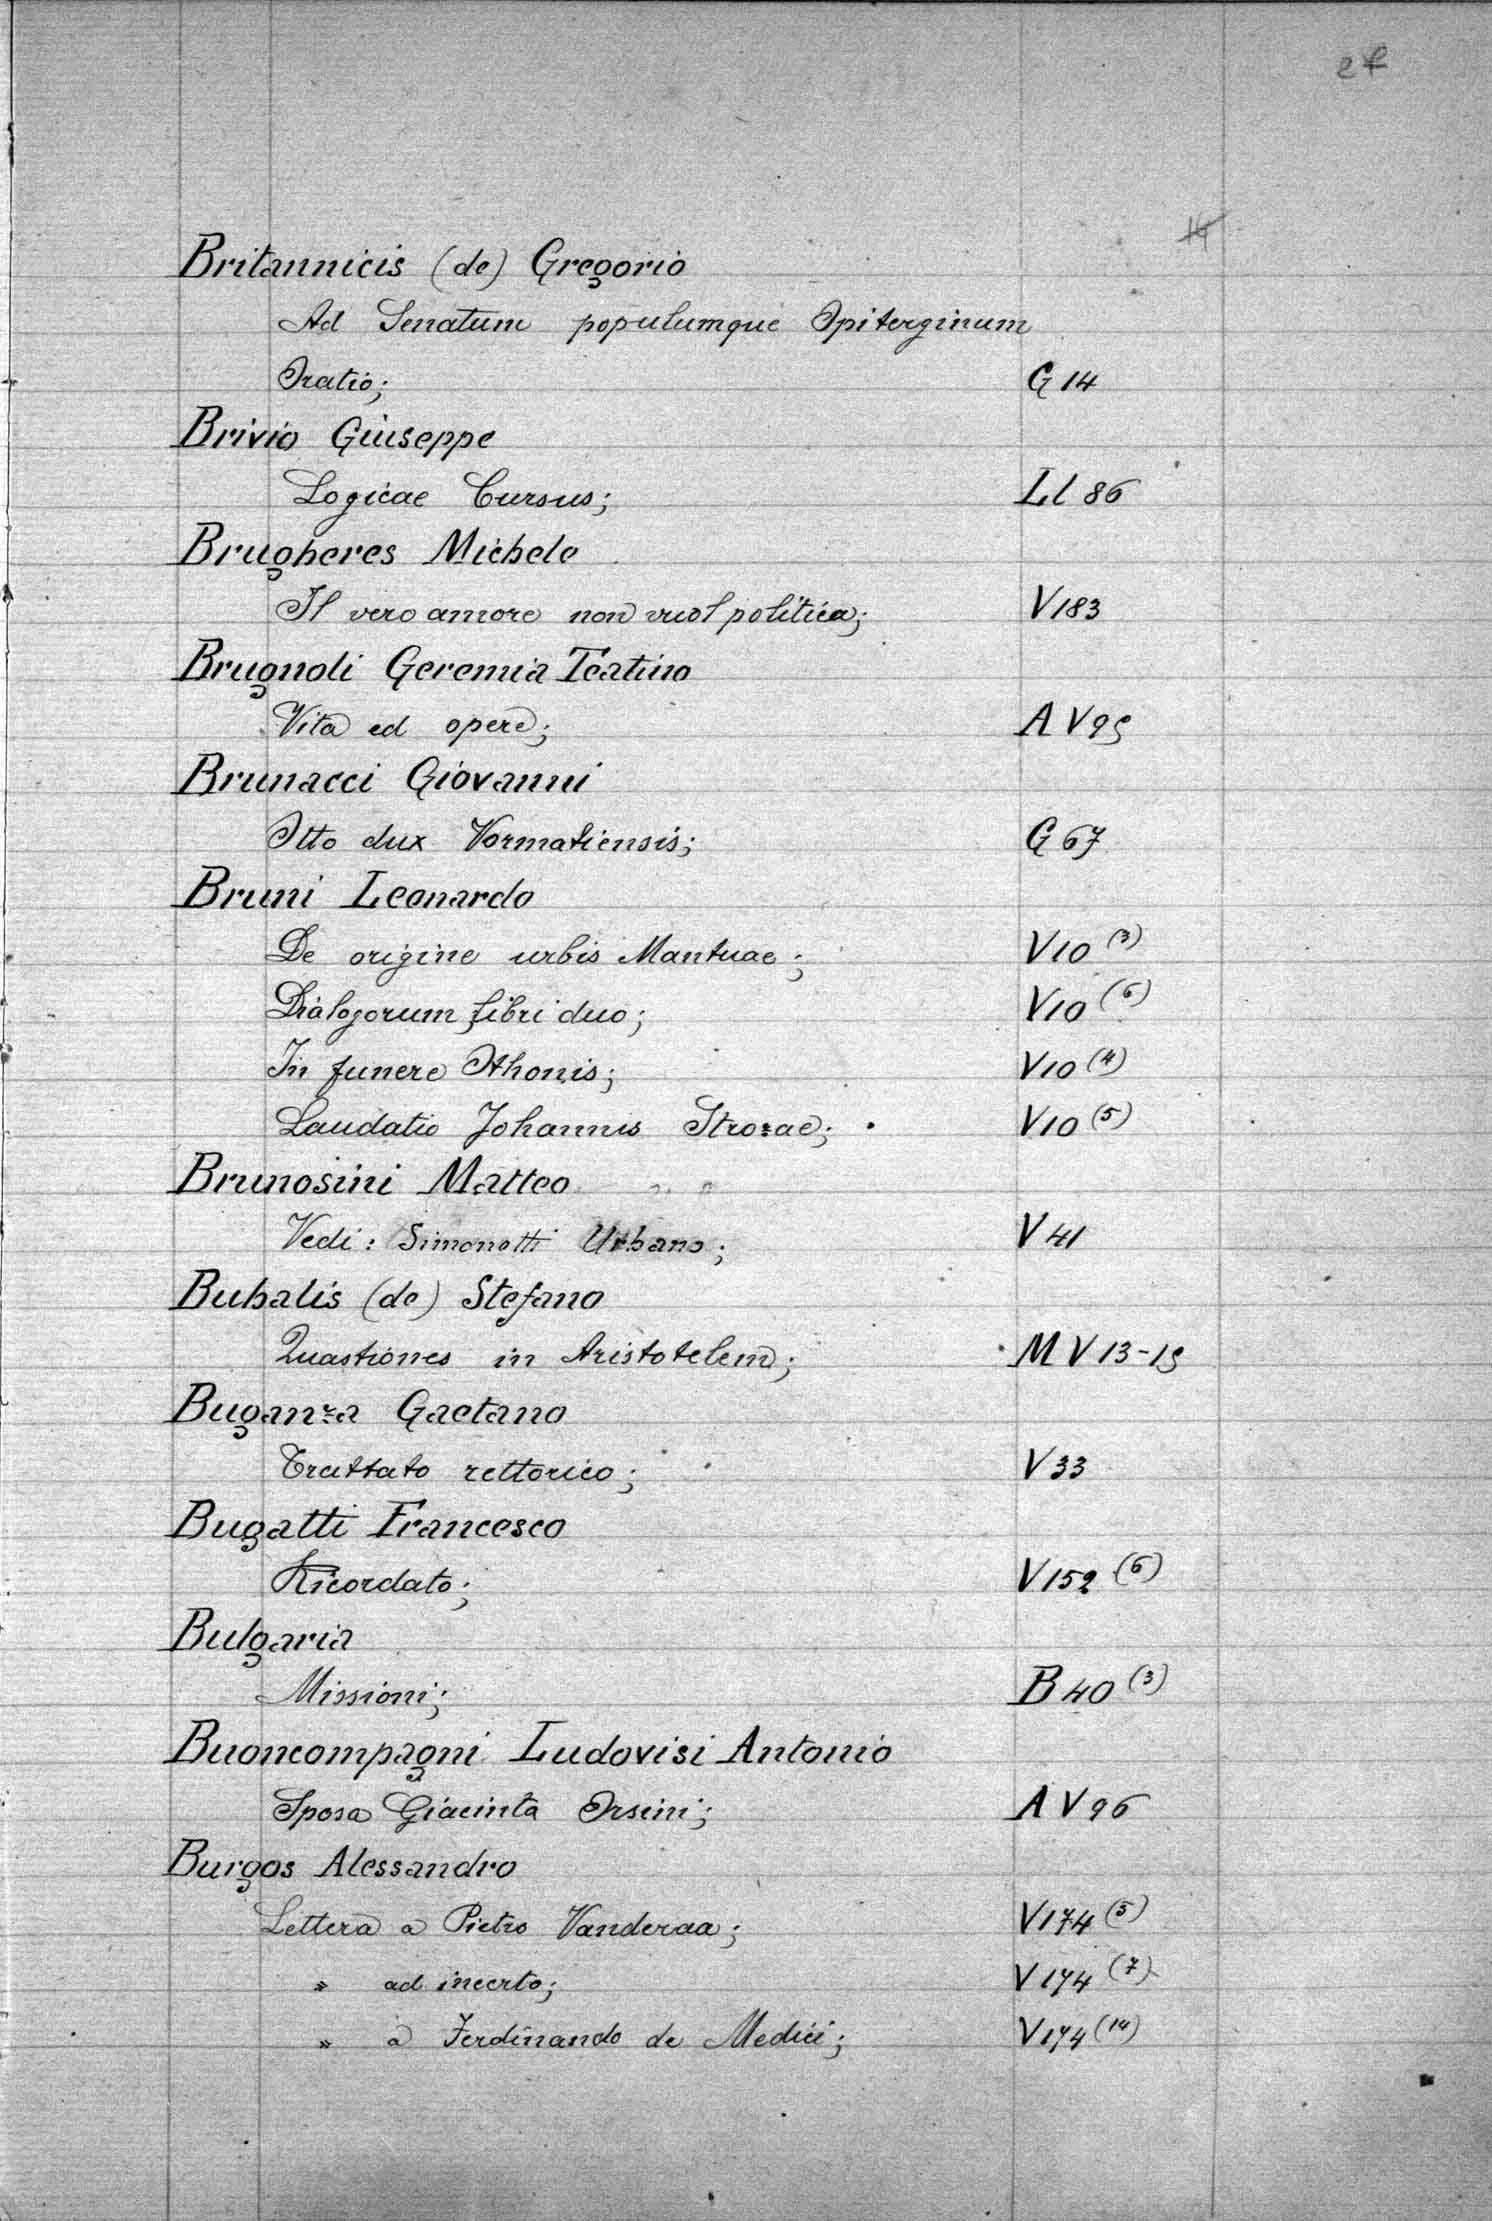 Britannicis (de) Gregorio
Ad Senatum populumque Opiterginum
Oratio; G 14
Brivio Giuseppe
Logicae Cursus; Ll 86
Brugheres Michele
Il vero amore non vuol politica; V 183
Brugnoli Geremia Teatino
Vita ed opere; A V 95
Brunacci Giovanni
Otto dux Vormatiensis; G 67
Bruni Leonardo
De origine urbis Mantuae; V 10 (3)
Dialogorum libri duo; V 10 (6)
In funere Othonis; V 10 (4)
Laudatio Johannis Strozae; V 10 (5)
Brunosini Matteo
Vedi: Simonetti Urbano; V 41
Bubalis (de) Stefano
Quastiones in Aristotelem; M V 13-15
Buganza Gaetano
Trattato rettorico; V 33
Bugatti Francesco
Ricordato; V 152 (6)
Bulgaria
Missioni; B 40 (3)
Buoncompagni Ludovisi Antonio
Sposa Giacinta Orsini; A V 96
Burgos Alessandro
Lettera a Pietro Vanderaa; V 174 (5)
" ad incerto; V 174 (7)
" a Ferdinando de Medici; V 174 (14)